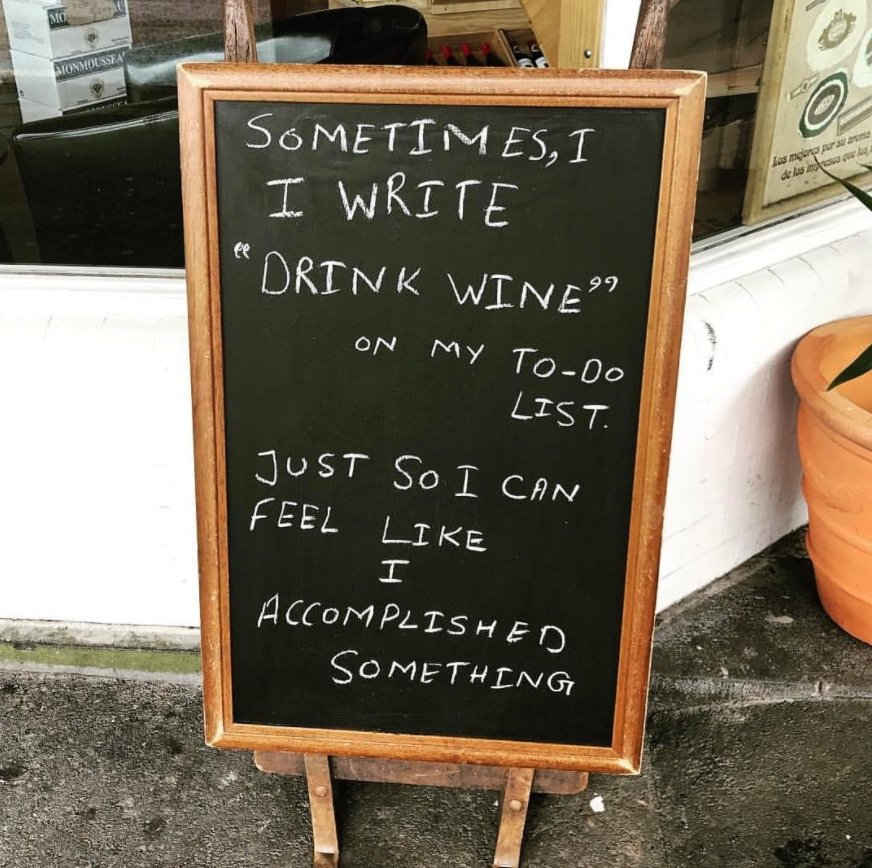 MO
MONMOUSSEA
MONMOUSSEA
Los mejores por su aroma
de los
que los
SOMETIMES, I
I WRITE
“DRINK WINE”
ON MY TO-DO
LIST.
JUST SO I CAN
FEEL LIKE
I
ACCOMPLISHED
SOMETHING